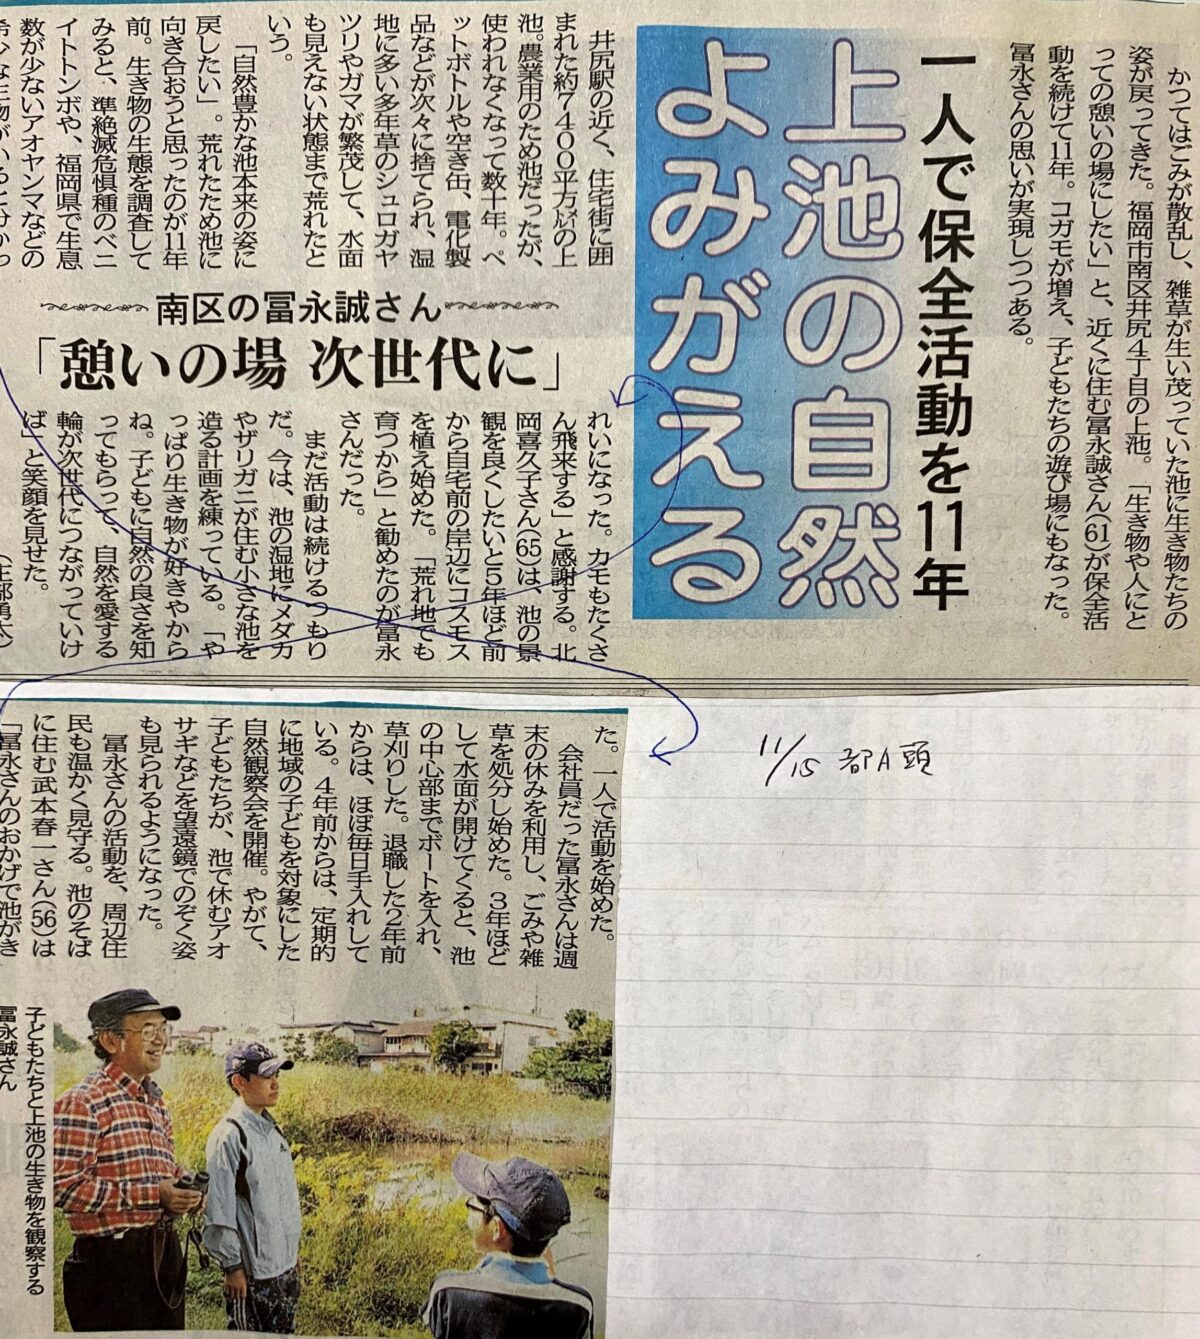 一人で保全活動を11年
上池の自然
よみガえる
かつてはごみが散乱し、雑草が生い茂っていた池に生き物たちの
姿が戻ってきた。福岡市南区井尻4丁目の上池。「生き物や人にと
っての憩いの場にしたい」と、近くに住む冨永誠さん(61)が保全活
動を続けて11年。コガモが増え、子どもたちの遊び場にもなった。
冨永さんの思いが実現しつつある。
井尻駅の近く、住宅街に囲
まれた約7400平方㍍の上
池。農業用のため池だったが、
使われなくなって数十年。ペ
ットボトルや空き缶、電化製
品などが次々に捨てられ、湿
地に多い多年草のシュロガヤ
ツリやガマが繁茂して、水面
も見えない状態まで荒れたと
いう。
「自然豊かな池本来の姿に
戻したい」。荒れたため池に
向き合おうと思ったのが11年
前。生き物の生態を調査して
みると、準絶滅危惧種のベニ
イトトンボや、福岡県で生息
数が少ないアオヤンマなどの
希少な生物がいると分かっ
南区の冨永誠さん
「憩いの場 次世代に」
た。一人で活動を始めた。
会社員だった冨永さんは週
末の休みを利用し、ごみや雑
草を処分し始めた。3年ほど
して水面が開けてくると、池
の中心部までボートを入れ、
草刈りした。退職した2年前
からは、ほぼ毎日手入れして
いる。4年前からは、定期的
に地域の子どもを対象にした
自然観察会を開催。やがて、
子どもたちが、池で休むアオ
サギなどを望遠鏡でのぞく姿
も見られるようになった。
冨永さんの活動を、周辺住
民も温かく見守る。池のそば
に住む武本春一さん(56)は
「冨永さんのおかげで池がき
れいになった。カモもたくさ
ん飛来する」と感謝する。北
岡喜久子さん(65)は、池の景
観を良くしたいと5年ほど前
から自宅前の岸辺にコスモス
を植え始めた。「荒れ地でも
育つから」と勧めたのが冨永
さんだった。
まだ活動は続けるつもり
だ。今は、池の湿地にメダカ
やザリガニが住む小さな池を
造る計画を練っている。「や
っぱり生き物が好きやから
ね。子どもに自然の良さを知
ってもらって、自然を愛する
輪が次世代につながっていけ
ば」と笑顔を見せた。
子どもたちと上池の生き物を観察する
冨永誠さん
11/15 都A頭